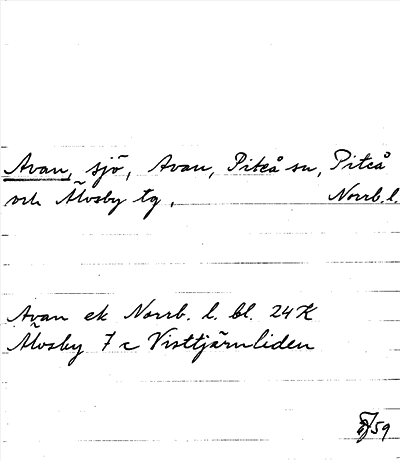 Avan, sjö, Avan, Piteå sn, Piteå
och Älvsby tg, Norrb. l.
Avan ek Norrb. l. bl. 24 K
Älvsby 7 c Visttjärnliden
59